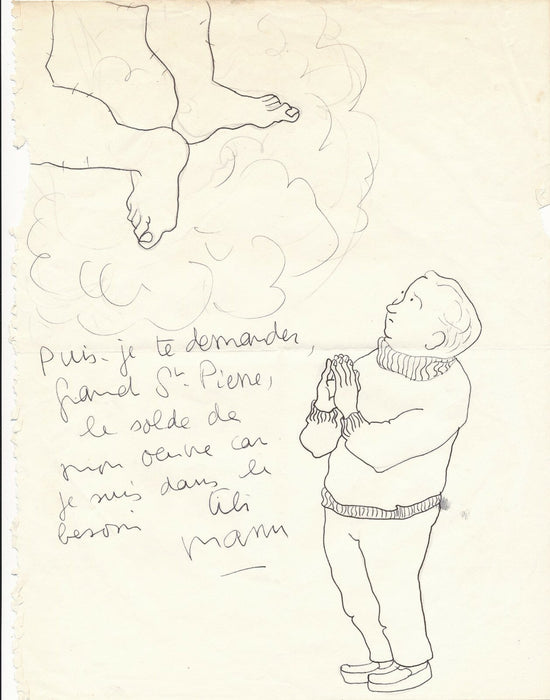 Puis-je te demander,
grand St. Pierre,
le solde de
mon œuvre car
je suis dans le
besoin
Manu